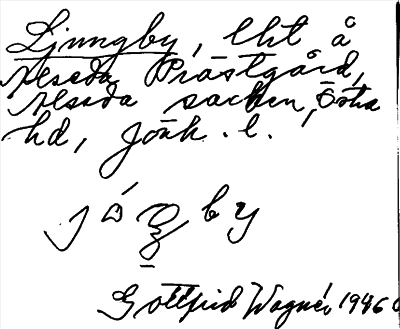 Ljungby, lht å
Alseda Prästgård,
Alseda socken, Östra
hd, Jönk. l.
Gottfrid Wagnér 1946